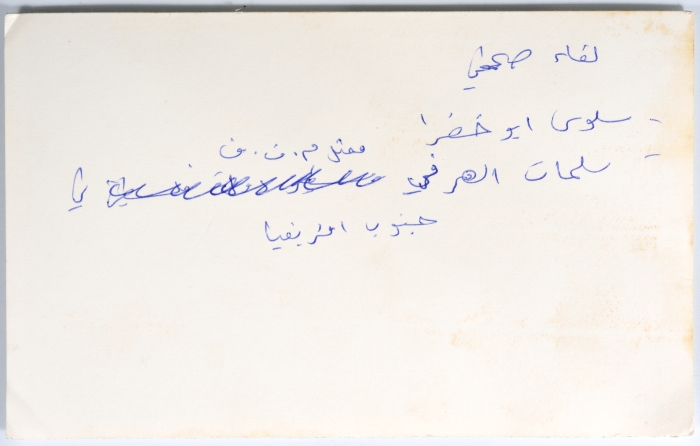 لقاء صحفي
- سلوى ابو خضرا
ممثل م. ت. ف.
- سلمان الهرفي في
جنوب افريقيا